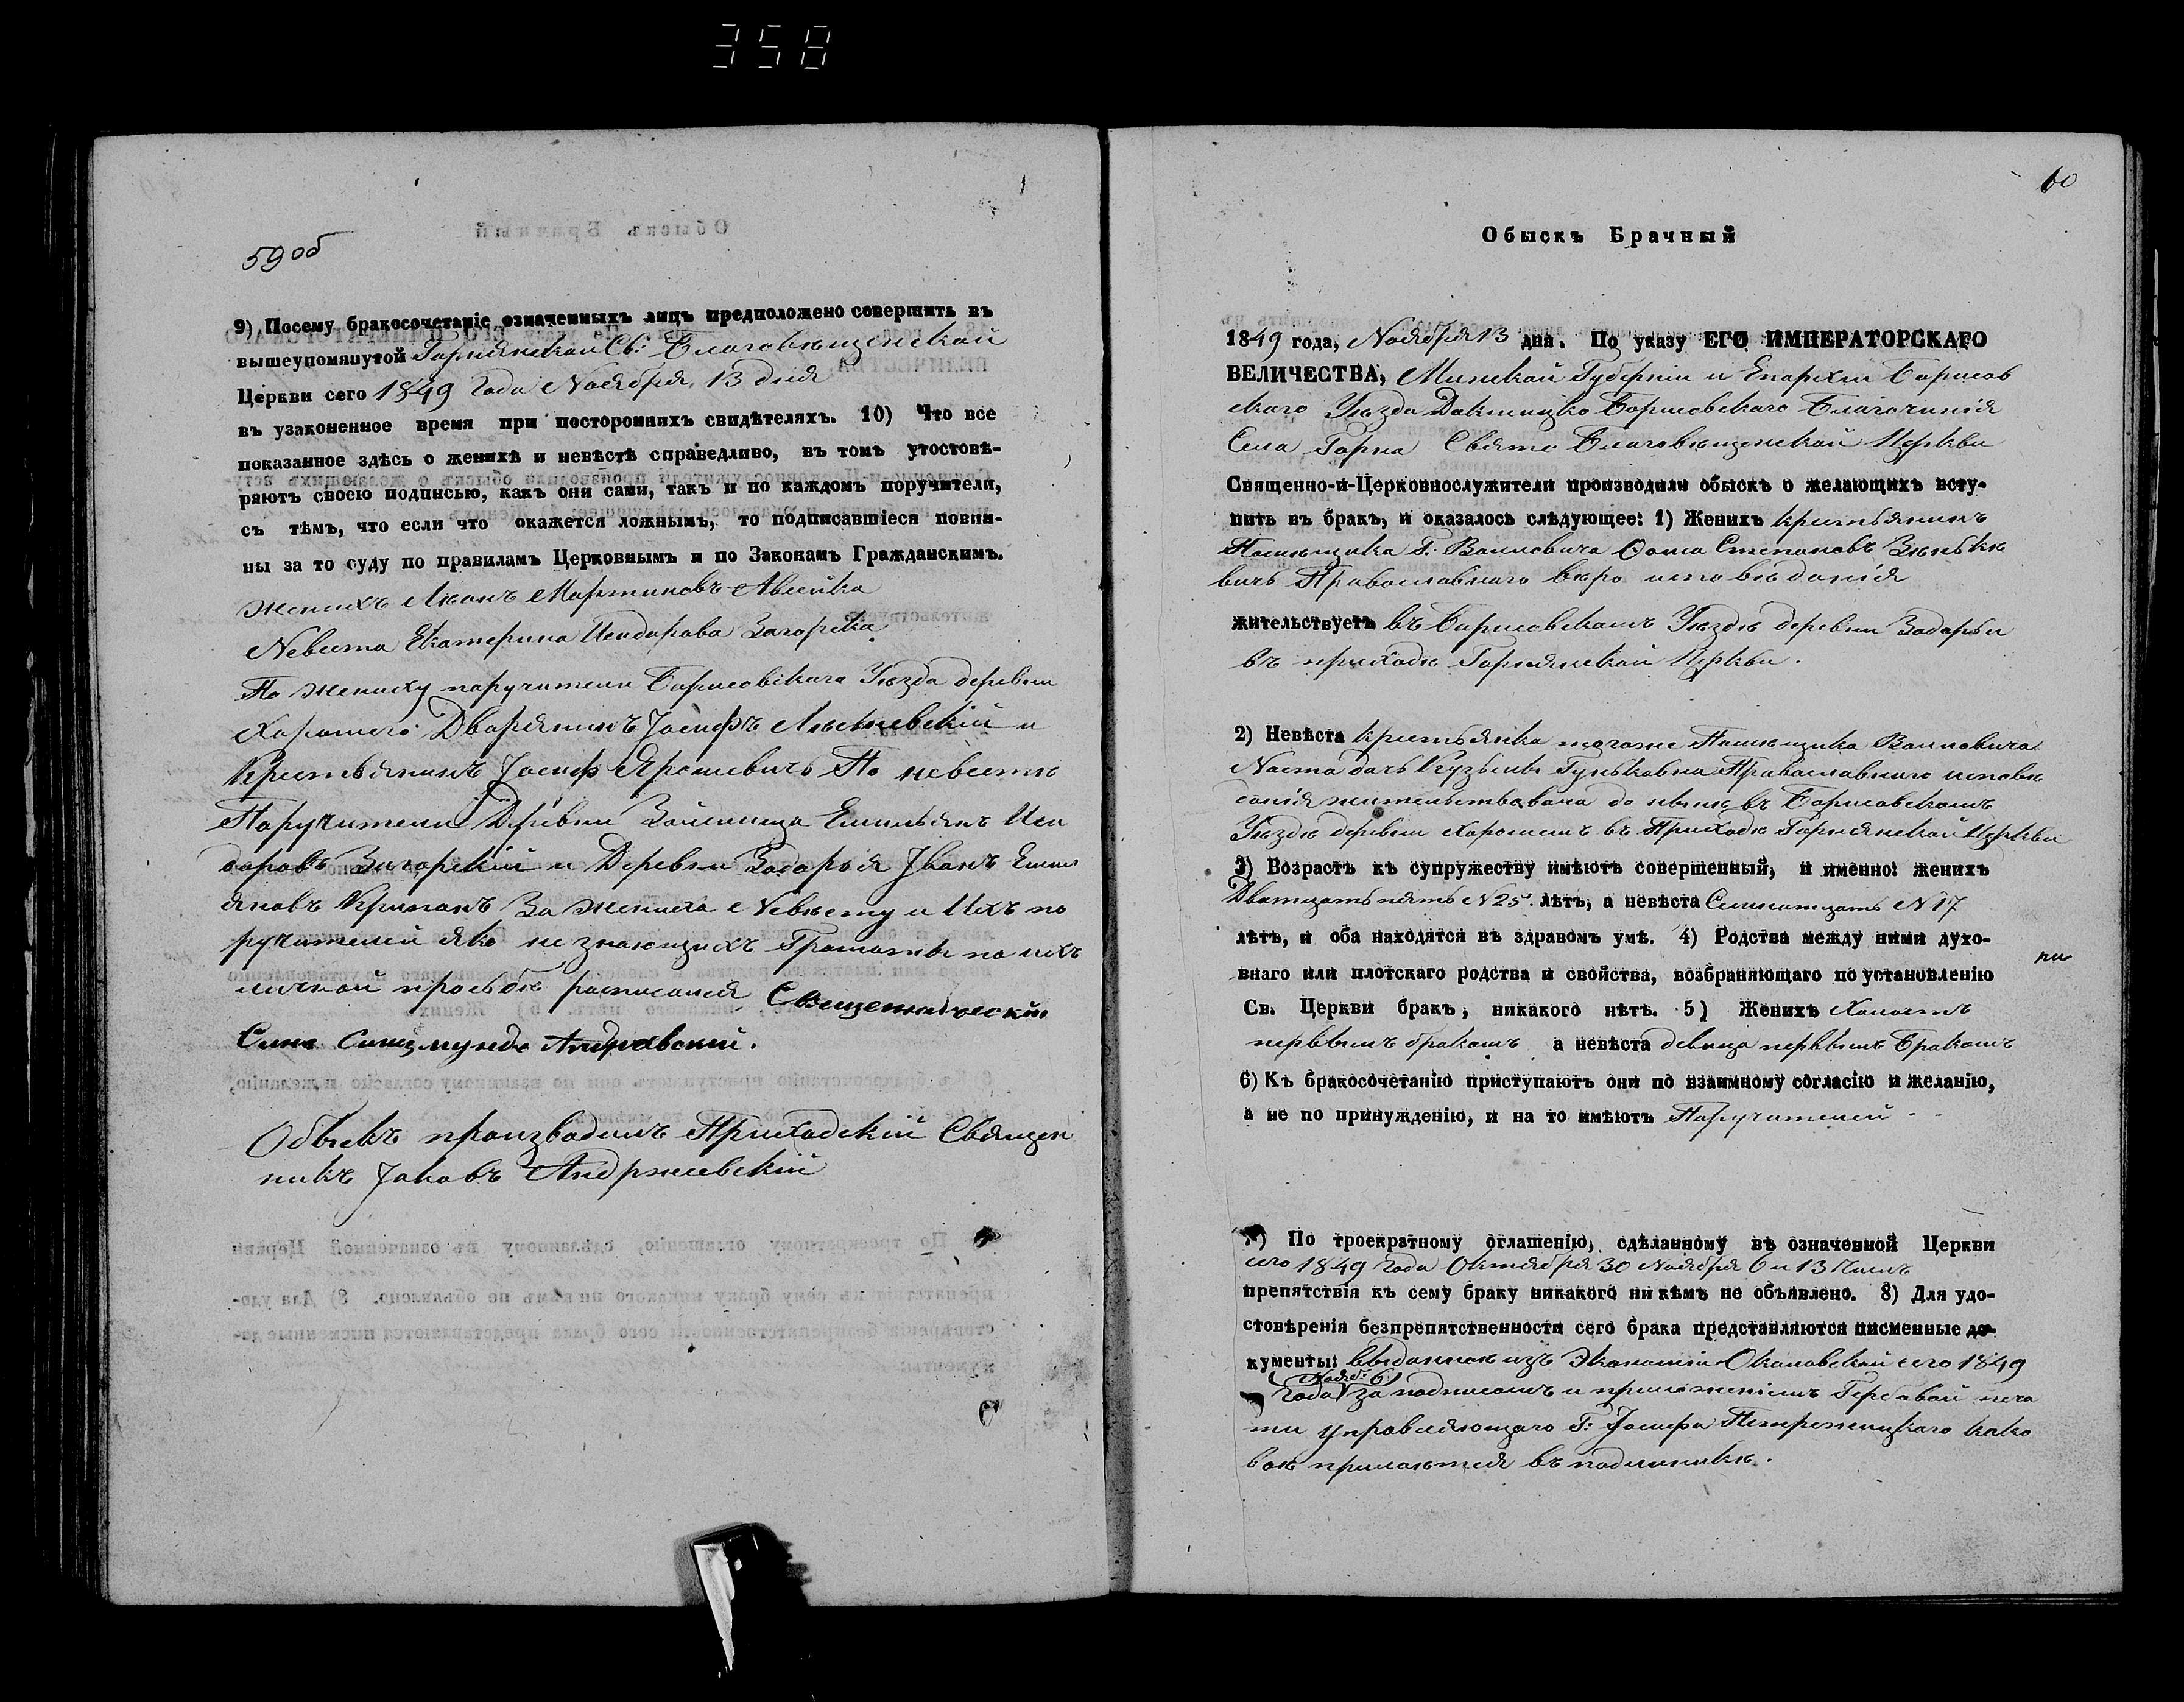 358
59 об
9) Посему бракосочетаніе означенныхъ лицъ предположено совершить въ
вышеупомянутой Горнянской Св: Благовѣщенской
Церкви сего 1849 Года Ноября 13 дня
въ узаконенное время при посторомнихъ свидѣтеляхъ. 10) Что все
показанное здѣсь о женихѣ и невѣстѣ справедливо, въ томъ утостовѣ-
ряютъ своею подписью, какъ они сами, такъ и по каждомъ поручители,
съ тѣмъ, что если что окажется ложнымъ, то подписавшіеся повин-
ны за то суду по правиламъ Церковнымъ и по Законамъ Гражданскимъ.
женихъ Мартиновъ
Невѣста Екатерина Исидорова Загорска
По жениху поручители Борисовскаго Уѣзда деревни
Хорошего Дворянинъ Іосифъ и
Крестьянинъ Іосиф Ярошевичъ По невестѣ
Поручители Деревни Емильянъ Иси
доровъ Загорскій и Деревни Задорья Іванъ Емил
яновъ За жениха Невѣсту и Ихъ по
ручителей яко не знающихъ Грамоты по ихъ
личной просьбѣ росписался Священническій
Сынъ Сигизмундъ
Обыскъ производилъ Приходскій Священ
никъ Іаковъ Андржеевскій
60
Обыскъ Брачный
1849 года, Ноября 13 дня. По указу ЕГО ИМПЕРАТОРСКАГО
ВЕЛИЧЕСТВА, Минской Губерніи и Епархіи Борисов
скаго Уѣзда Докшицко Борисовскаго Благочинія
Села Горна Свято Благовѣщенской Церкви
Священно-и-Церковнослужители производили обыскъ о желающихъ всту-
пить въ бракъ, и оказалось слѣдующее: 1) Женихъ крестьянинъ
Помѣщика Г. Ваньковича Фома Степановъ Зѣнькѣ
вичь Православнаго вѣро исповѣданія
жительствуетъ въ Борисовскомъ Уѣздѣ деревни Задорьи
въ приходѣ Горнянской Церкви.
2) Невѣста крестьянка тогоже Помѣщика Ваньковича
Наста дочь Кузьмы Православнаго исповѣ
данія жительствовала до нынѣ въ Борисовскомъ
Уѣздѣ деревни Хорошемъ въ Приходѣ Горнянской Церкви
3) Возрастъ къ супружеству имѣютъ совершенный, и именно: женихъ
Дватцать пять N 25. лѣтъ, а невѣста Семнатцать N 17
лѣтъ, и оба находятся въ здравомъ умѣ. 4) Родства между ними духо-
внаго или плотскаго родства и свойства, возбраняющаго по установленію
Св. Церкви бракъ, никакого нѣтъ. 5) Женихъ Холостъ
первымъ бракомъ а невѣста девица первымъ Бракомъ
6) Къ бракосочетанію приступаютъ они по взаимному согласію и желанію,
а не по принужденію, и на то имѣютъ Поручителей
7) По троекратному оглашенію, сдѣланному въ означенной Церкви
сего 1849 Года Октября 30 Ноября 6 и 13 Числъ
препятствія къ сему браку никакого ни кѣмъ не объявлено. 8) Для удо-
стовѣренія безпрепятственности сего брака представляются писменные до-
кументы: выданное изъ Экономіи Околовской сего 1849
Нояб: 6
Года за подписомъ и приложеніемъ Гербовой печа
ти управляющаго Г: Іосифа како
вое прилается въ подлинникѣ.